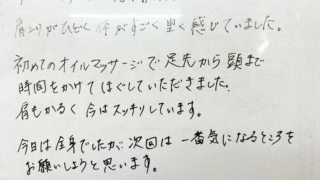 肩こりがひどく体がすごく重く感じていました。
初めてのオイルマッサージで足先から頭まで
時間をかけてほぐしていただきました。
肩もかるく今はスッキリしています。
今日は全身でしたが、次回は一番気になるところを
お願いしようと思います。